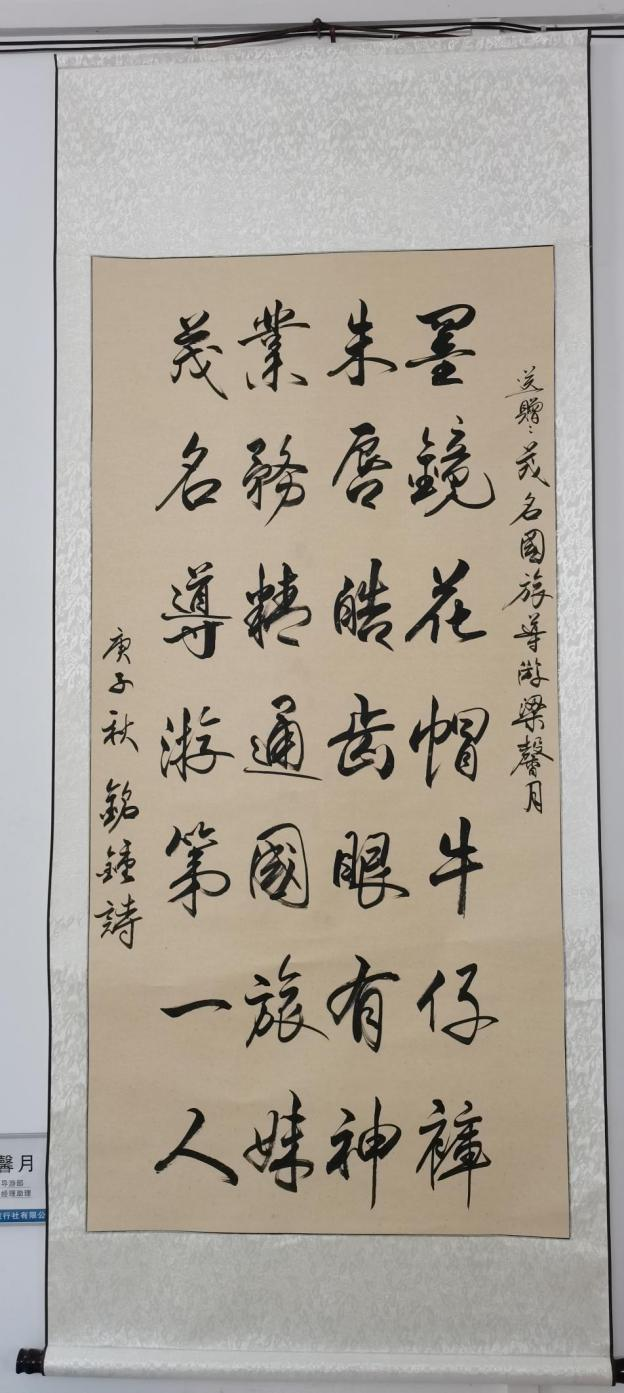 送赠：茂名国旅導游梁馨月
墨鏡花帽牛仔褲
朱唇皓齒眼有神
業務精通國旅妹
茂名導游第一人
庚子秋 銘鍾詩
馨月
导游部
经理助理
行社有限公